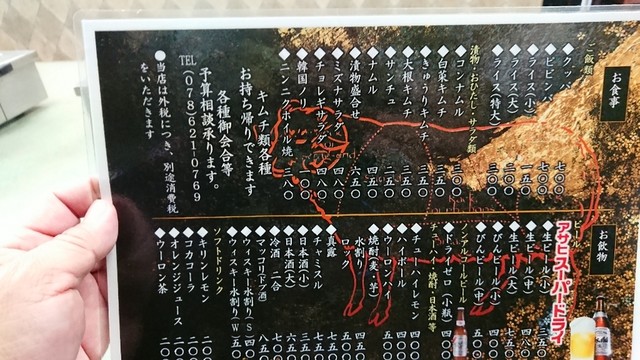 お食事
ご飯類
◆クッパ 七〇〇
◆ビビンバ 七〇〇
◆ライス(小) 一五〇
◆ライス(大) 二〇〇
◆ライス(特大) 三〇〇
漬物・おひたし・サラダ類
◆コンナムル 三〇〇
◆白菜キムチ 三五〇
◆きゅうりキムチ 三五〇
◆大根キムチ 三五〇
◆サンチュ 三五〇
◆ナムル 四五〇
◆漬物盛合せ 六五〇
◆ミズナサラダ 四八〇
◆チョレギサラダ 四八〇
◆韓国ノリ 一〇〇
◆ニンニクホイル焼 三八〇
キムチ類各種
お持ち帰りできます
各種御会合等
予算相談承ります。
TEL(078)621-0769
●当店は外税につき、別途消費税
をいただきます
お飲物
ビール
アサヒスーパードライ
◆生ビール(小)
◆生ビール(中)
◆生ビール(大)
◆びんビール(小)
◆びんビール(中)
ノンアルコールビール
◆ドライゼロ(小瓶)
チューハイ・焼酎・日本酒等
◆チューハイレモン
◆ハイボール
◆ウーロンハイ
◆焼酎(麦・芋)
水割り
ロック
◆真露
◆チャミスル
◆日本酒(小)
◆日本酒(大)
◆冷酒 二合
◆マッコリ(ドブ酒)
◆ウィスキー水割り(S)
◆ウィスキー水割り(W)
ソフトドリンク
◆キリンレモン
◆コカコーラ
◆オレンジジュース
◆ウーロン茶